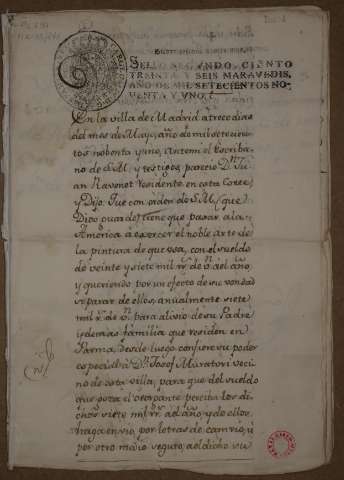 SELLO SEGVNDO, CIENTO
TREINTA Y SEIS MARAVEDIS,
AÑO DE MIL SETECIENTOS NO-
VENTA Y VNO.
En la villa de Madrid a trece dias
del mes de Mayo, año de mil setecien-
tos nobenta y uno, Antemi el Escriba-
no de S.M. y testigos, parecio Dn. Ju-
an Ravenet residente en esta Corte,
y Dijo: Que con orden de S.M. (que
Dios guarde) tiene que pasar a la
America a exercer el noble Arte de
la pintura de que usa, con el sueldo
de veinte y siete mil rs. de vn. al año,
y queriendo por un efecto de su vondad
separar de ellos, anualmente siete
mil rs. de vn. para alivio de su Padre
y demas familia que residen en
Parma, desde luego confiere su poder
especial a Dn. Josef Muratori veci-
no de esta villa, para que del sueldo
que goza el otorgante perciba los di-
chos siete mil rs. al año, y de ellos
haga envio, por letras de camvio, ú
por otro medio seguro, al dicho su